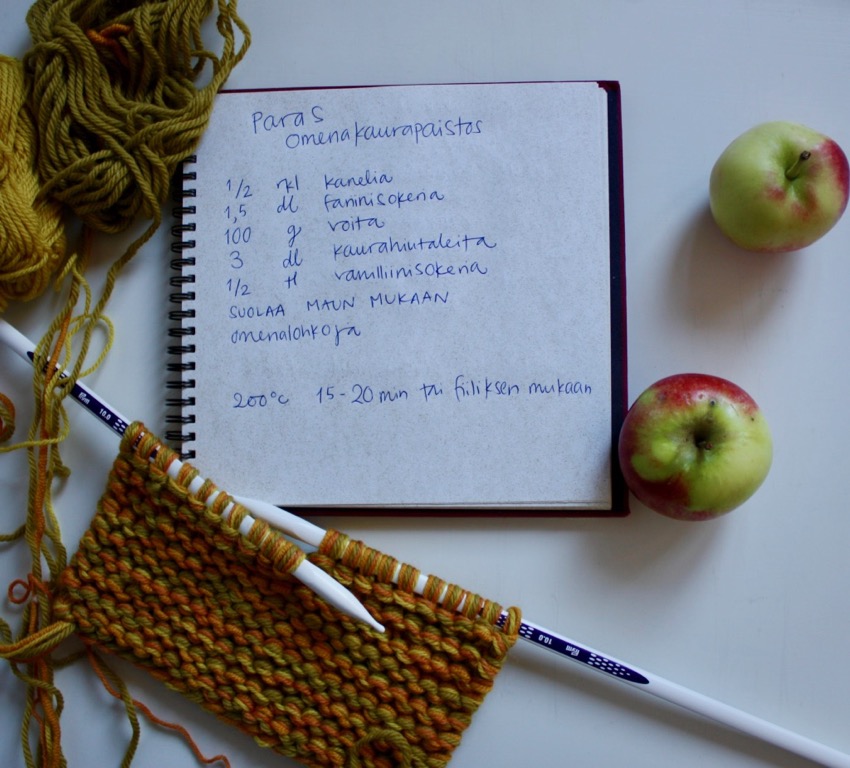 Paras
omenakaurapaistos
1/2 rkl kanelia
1,5 dl fariinisokeria
100 g voita
3 dl kaurahiutaleita
1/2 tl vanilliinisokeria
SUOLAA MAUN MUKAAN
omenalohkoja
200°C 15-20 min tai fiiliksen mukaan
10.0
10.0